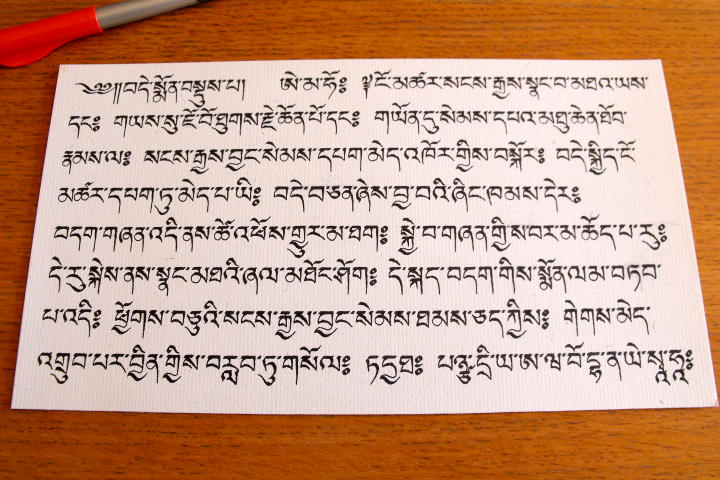 ༄༅།།བདེ་སྨོན་བསྡུས་པ། ཨེ་མ་ཧོ༔ ངོ་མཚར་སངས་རྒྱས་སྣང་བ་མཐའ་ཡས་
དང༔ གཡས་སུ་ཇོ་བོ་ཐུགས་རྗེ་ཆེན་པོ་དང༔ གཡོན་དུ་སེམས་དཔའ་མཐུ་ཆེན་ཐོབ་
རྣམས་ལ༔ སངས་རྒྱས་བྱང་སེམས་དཔག་མེད་འཁོར་གྱིས་བསྐོར༔ བདེ་སྐྱིད་ངོ་
མཚར་དཔག་ཏུ་མེད་པ་ཡི༔ བདེ་བཅན་ཞེས་བྱ་བའི་ཞིང་ཁམས་དེར༔
བདག་གཞན་འདི་ནས་ཚེ་འཕོས་གྱུར་མ་ཐག༔ སྐྱེ་བ་གཞན་གྱིས་བར་མ་ཆོད་པ་རུ༔
དེ་རུ་སྐྱེས་ནས་སྣང་མཐའི་ཞལ་མཐོང་ཤོག༔ དེ་སྐད་བདག་གིས་སྨོན་ལམ་བཏབ་
པ་འདི༔ ཕྱོགས་བཅུའི་སངས་རྒྱས་བྱང་སེམས་ཐམས་ཅད་ཀྱིས༔ གེགས་མེད་
འགྲུབ་པར་བྱིན་གྱིས་བརླབ་ཏུ་གསོལ༔ ཏདྱཐ༔ པཉྩ་དྲི་ཡ་ཨ་ཝ་བོ་དྷ་ན་ཡེ་སྭཱ་ཧཱ༔